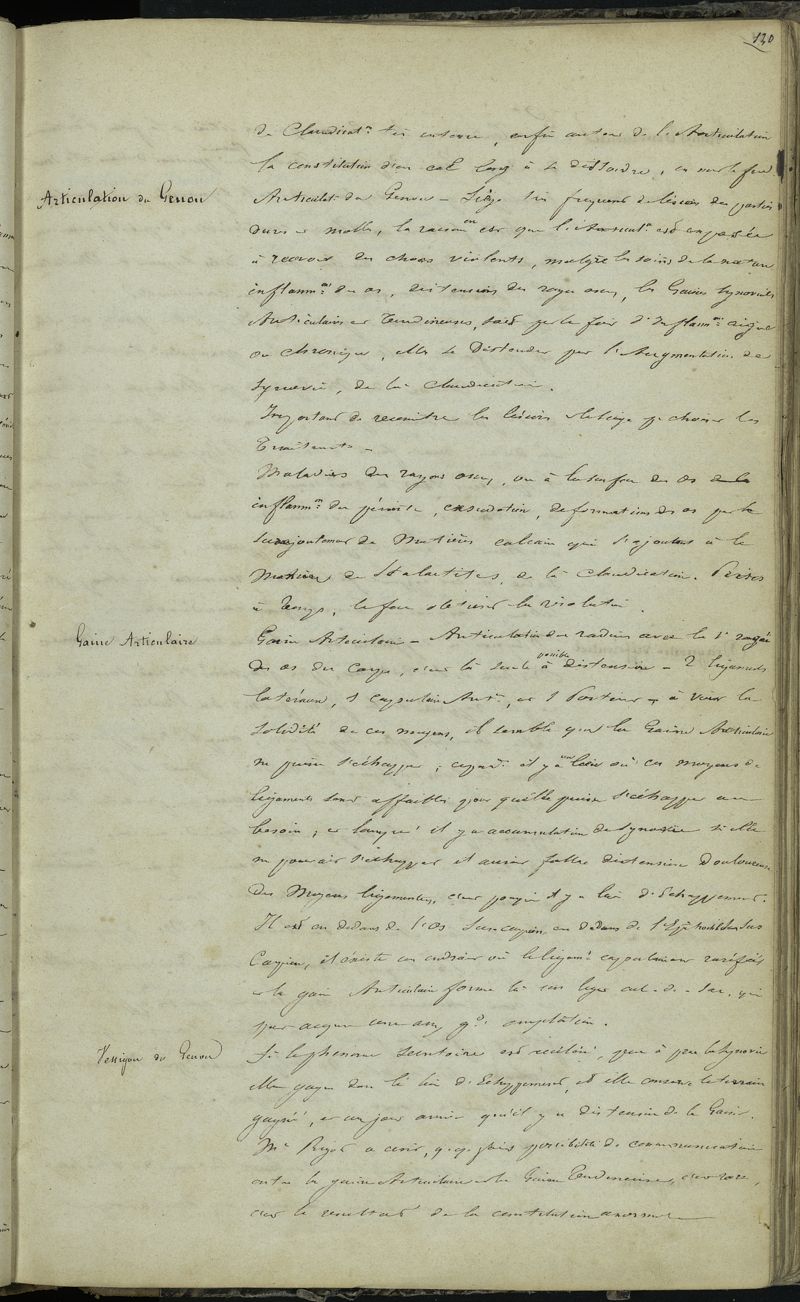 130
de Claudicatn très intense, enfin autour de l'Articulation
la constitution d'un cal long à se dissoudre, on met le feu
Articulation du Genou
Articulat. du Genou – Siège très fréquent de lésions des parties
dures et molles, la raison en est que l'Articulatn est exposée
à recevoir des chocs violents, malgré les soins de la nature
inflammon des os, distensions des rayons osseux, les Gaines Synoviales
Articulaires et Tendineuses, par le fait d'Inflamon aigue
ou chronique, elles se Distendent par l'Augmentation de
Synovie, de là claudication.
Important de reconnitre les lésions de chaque pr choisir les
Traitements –
Maladies des rayons osseux, on a à la surface des os
inflammon du périoste, exsudation, déformations des os par la
surajoutement de Matières calcaires qui s'ajoutent à la
Manière de Stalactites, de là Claudication. Prises
à Temps, le feu obtient la résolution.
Gaine Articulaire
Gaine Articulaire – Articulation du radius avec la 1e rangée
des os du carpe, c'est là seule possible à distension – 2 ligaments
latéraux, 1 capsulaire Antr, et 1 Postérieur – à voir la
Solidité de ces moyens, il semble que la Gaine Articulaire
ne puisse s'échapper ; cepent il y a un lieu où ces moyens de
ligaments sont affaiblis pour qu'elle puisse s'échapper au
besoin ; et lorsqu'il y a accumulation de Synovie si elle
ne pouvait s'échapper il aurait fallu distension Douloureuse
Des Moyens ligamenteux, c'est pourquoi il y a lieu d'Echappement.
Il est en dedans de l'os Suscarpien, en dedans de
Carpien, il existe un endroit où le ligamt capsulaire est raréfié
et la gaine Articulaire forme là un léger cul-de-sac, qui
peut acquérir une assez gde ampliation.
Vessigon du Genou
Si le phénomène Secrétoire est accéléré, peu à peu la Synovie
elle gagne dans le lieu d'Echappement, et elle conserve le terrain
gagné, et un jour arrive qu'il y a distension de la Gaine.
Mr Rigot a écrit, q.q. fois possibilité de communication
entre la gaine Articulaire et la Gaine Tendineuse, c'est rare,
c'est le résultat de la constitution anormale